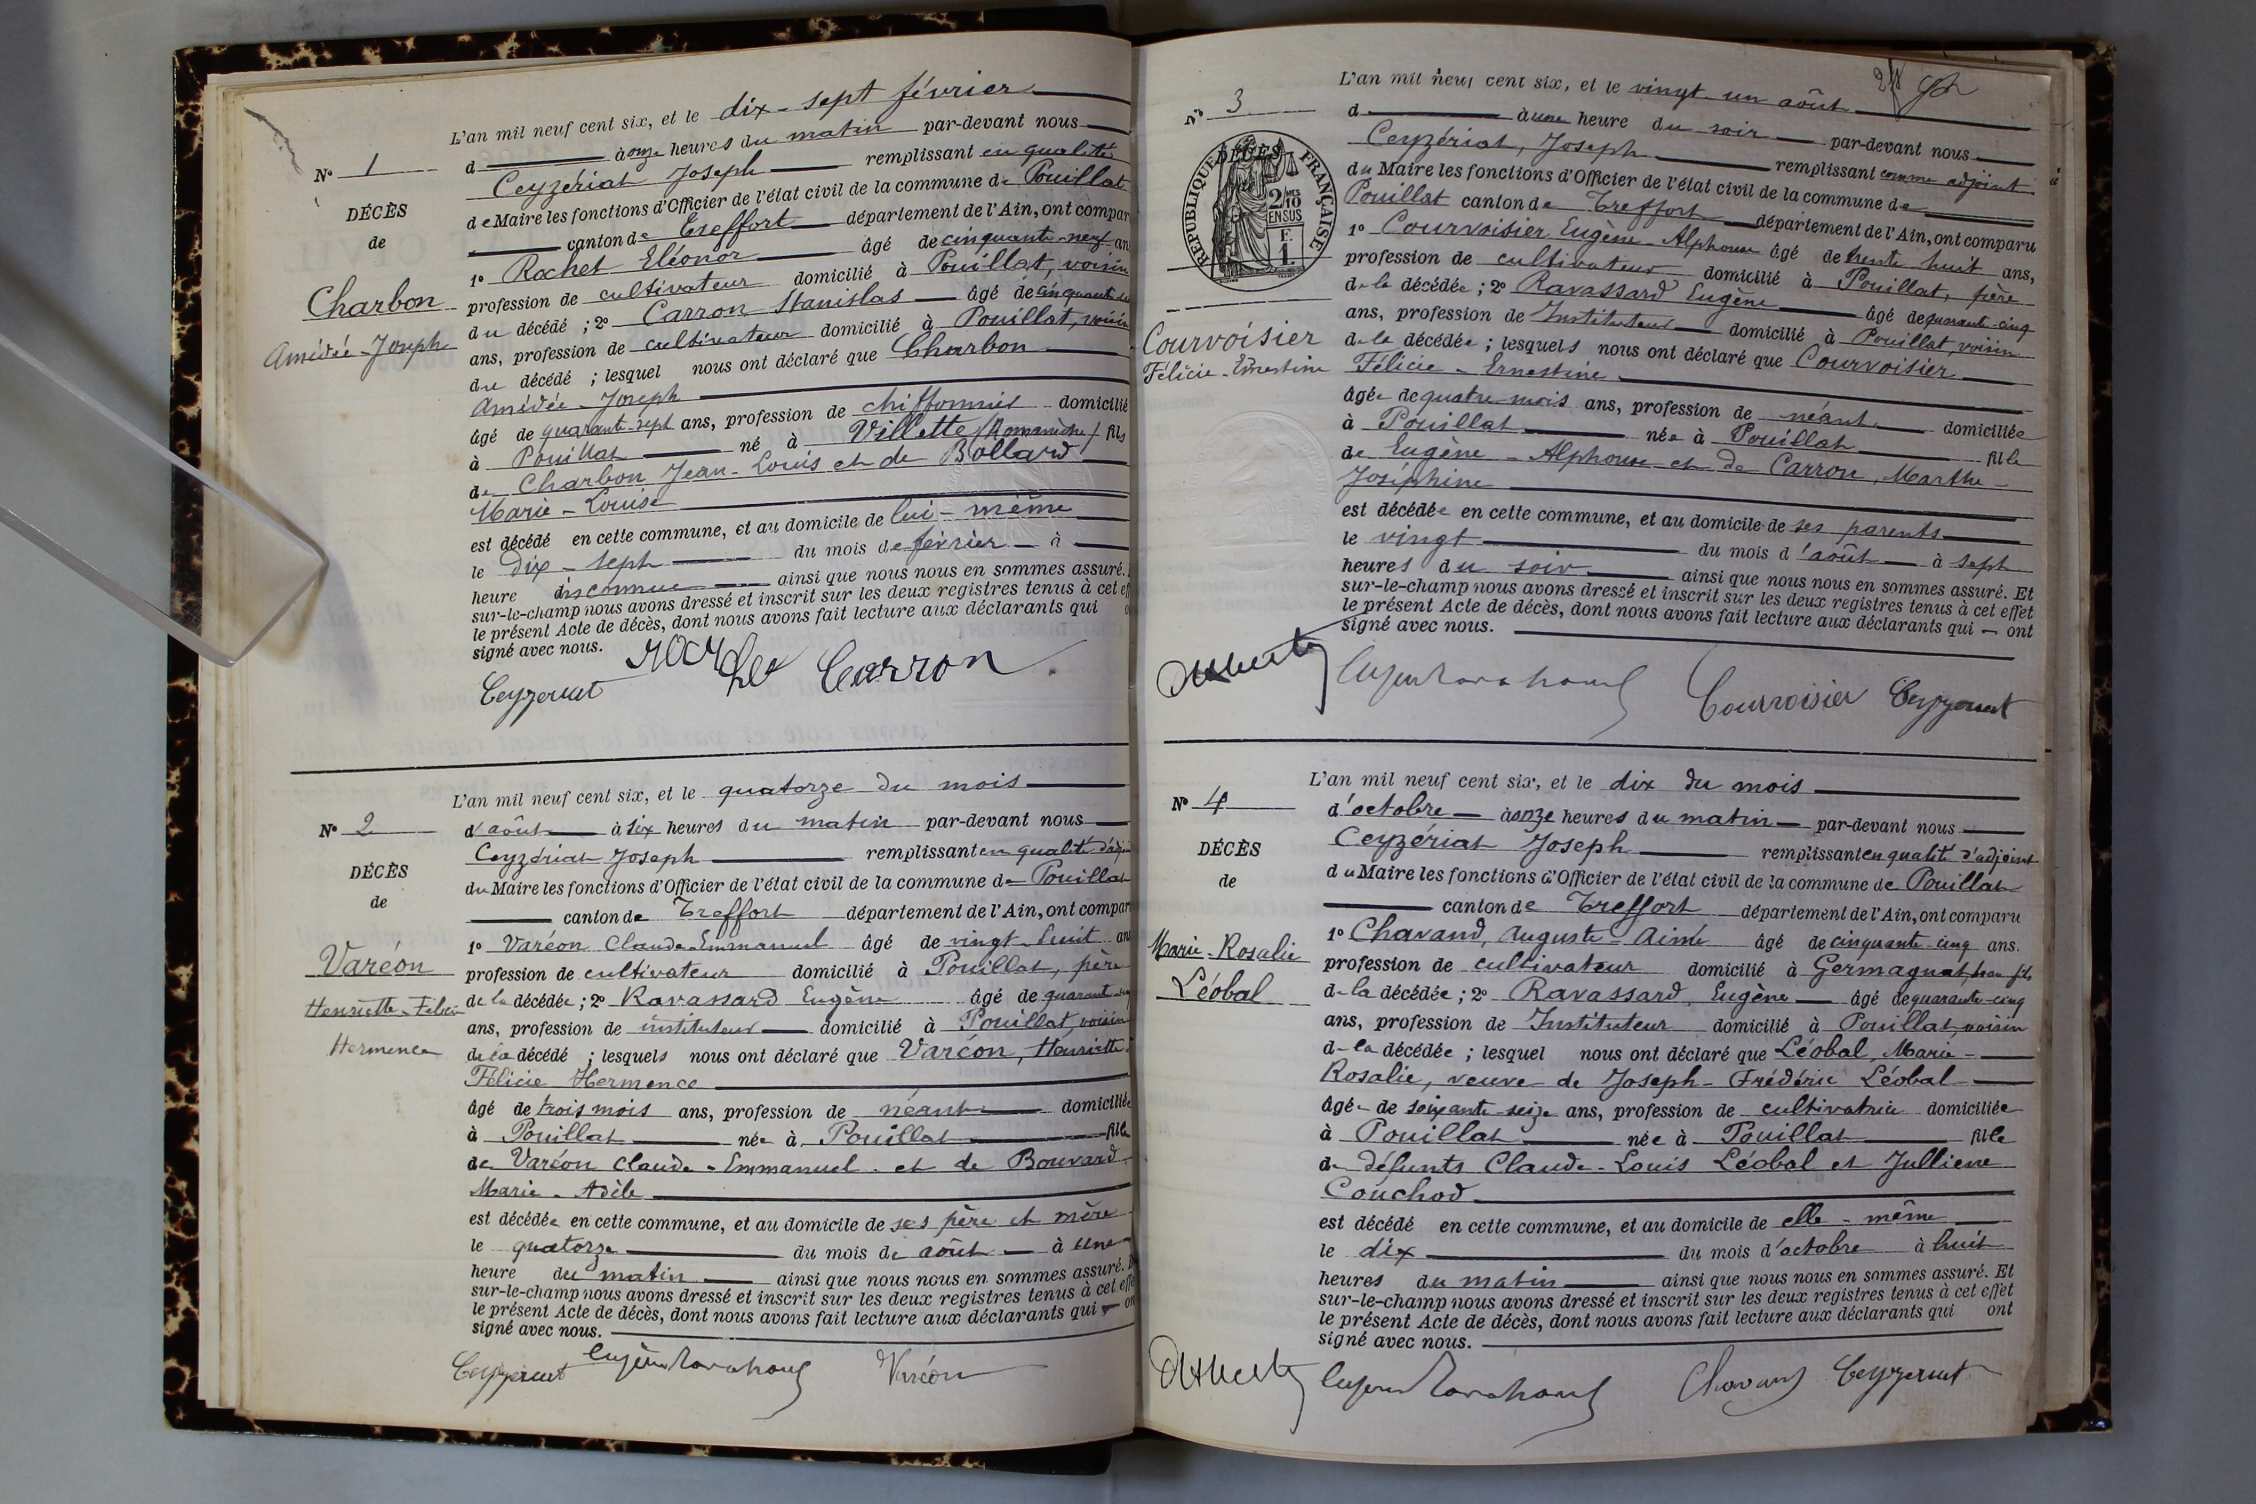 L'an mil neuf cent six, et le dix-sept février
d à onze heures du matin par-devant nous
Ceyzériat Joseph remplissant en qualité
de Maire les fonctions d'Officier de l'état civil de la commune de Pouillat
canton de Treffort département de l'Ain, ont compar
1° Rochet Eléonor âgé de cinquante-neuf an
profession de cultivateur domicilié à Pouillat, voisin
du décédé ; 2° Carron Stanislas âgé de cinquante
ans, profession de cultivateur domicilié à Pouillat, voisin
du décédé ; lesquel nous ont déclaré que Charbon
Amédée-Joseph
âgé de quarante-sept ans, profession de chiffonnier domicilié
à Pouillat né à Villette (Romanèche) fils
de Charbon Jean-Louis et de Bollard
Marie-Louise
est décédé en cette commune, et au domicile de lui-même
le dix-sept du mois de février à
heure disconnue ainsi que nous nous en sommes assuré.
sur-le-champ nous avons dressé et inscrit sur les deux registres tenus à cet eff
le présent Acte de décès, dont nous avons fait lecture aux déclarants qui o
signé avec nous.
Ceyzeriat Carron
N° 1
DÉCÈS
de
Charbon
Amédée-Joseph
L'an mil neuf cent six, et le quatorze du mois
d'août à six heures du matin par-devant nous
Ceyzériat Joseph remplissant en qualité d'adjoin
du Maire les fonctions d'Officier de l'état civil de la commune de Pouillat
canton de Treffort département de l'Ain, ont compar
1° Varéon Claude-Emmanuel âgé de vingt-huit an
profession de cultivateur domicilié à Pouillat, père
de la décédée ; 2° Ravassard Eugène âgé de quarante-cinq
ans, profession de instituteur domicilié à Pouillat, voisin
de la décédé ; lesquels nous ont déclaré que Varéon, Henriette-
Félicie Hermence
âgé de trois mois ans, profession de néant domiciliée
à Pouillat née à Pouillat fille
de Varéon Claude-Emmanuel et de Bouvard
Marie-Adèle
est décédée en cette commune, et au domicile de ses père et mère
le quatorze du mois de août à une
heure du matin ainsi que nous nous en sommes assuré. E
sur-le-champ nous avons dressé et inscrit sur les deux registres tenus à cet effe
le présent Acte de décès, dont nous avons fait lecture aux déclarants qui on
signé avec nous.
Ceyzeriat Eugène Ravassard Varéon
N° 2
DÉCÈS
de
Varéon
Henriette-Félicie
Hermence
L'an mil neuf cent six, et le vingt-un août
d à une heure du soir par-devant nous
Ceyzériat, Joseph remplissant comme adjoint
du Maire les fonctions d'Officier de l'état civil de la commune de
Pouillat canton de Treffort département de l'Ain, ont comparu
1° Courvoisier Eugène-Alphonse âgé de trente huit ans,
profession de cultivateur domicilié à Pouillat, père
de la décédée ; 2° Ravassard Eugène âgé de quarante-cinq
ans, profession de Instituteur domicilié à Pouillat, voisin
de la décédée ; lesquels nous ont déclaré que Courvoisier
Félicie-Ernestine
âgée de quatre mois ans, profession de néant domiciliée
à Pouillat née à Pouillat fille
de Eugène-Alphonse et de Carron, Marthe-
Joséphine
est décédée en cette commune, et au domicile de ses parents
le vingt du mois d'août à sept
heures du soir ainsi que nous nous en sommes assuré. Et
sur-le-champ nous avons dressé et inscrit sur les deux registres tenus à cet effet
le présent Acte de décès, dont nous avons fait lecture aux déclarants qui ont
signé avec nous.
Eugène Ravassard Courvoisier Ceyzeriat
N° 3
DÉCÈS
RÉPUBLIQUE FRANÇAISE
2/10 MES
EN SUS
F.
1.
Courvoisier
Félicie-Ernestine
L'an mil neuf cent six, et le dix du mois
d'octobre à onze heures du matin par-devant nous
Ceyzériat Joseph remplissant en qualité d'adjoint
du Maire les fonctions d'Officier de l'état civil de la commune de Pouillat
canton de Treffort département de l'Ain, ont comparu
1° Chavand, Auguste-Aimé âgé de cinquante-cinq ans.
profession de cultivateur domicilié à Germagnat, beau fils
de la décédée ; 2° Ravassard, Eugène âgé de quarante-cinq
ans, profession de Instituteur domicilié à Pouillat, voisin
de la décédée ; lesquel nous ont déclaré que Léobal, Marie-
Rosalie, veuve de Joseph-Frédéric Léobal
âgée de soixante-seize ans, profession de cultivatrice domiciliée
à Pouillat née à Pouillat fille
de défunts Claude-Louis Léobal et Jullienne
Couchod
est décédé en cette commune, et au domicile de elle-même
le dix du mois d'octobre à huit
heures du matin ainsi que nous nous en sommes assuré. Et
sur-le-champ nous avons dressé et inscrit sur les deux registres tenus à cet effet
le présent Acte de décès, dont nous avons fait lecture aux déclarants qui ont
signé avec nous.
Eugène Ravassard Chavand Ceyzeriat
N° 4
DÉCÈS
de
Marie-Rosalie
Léobal